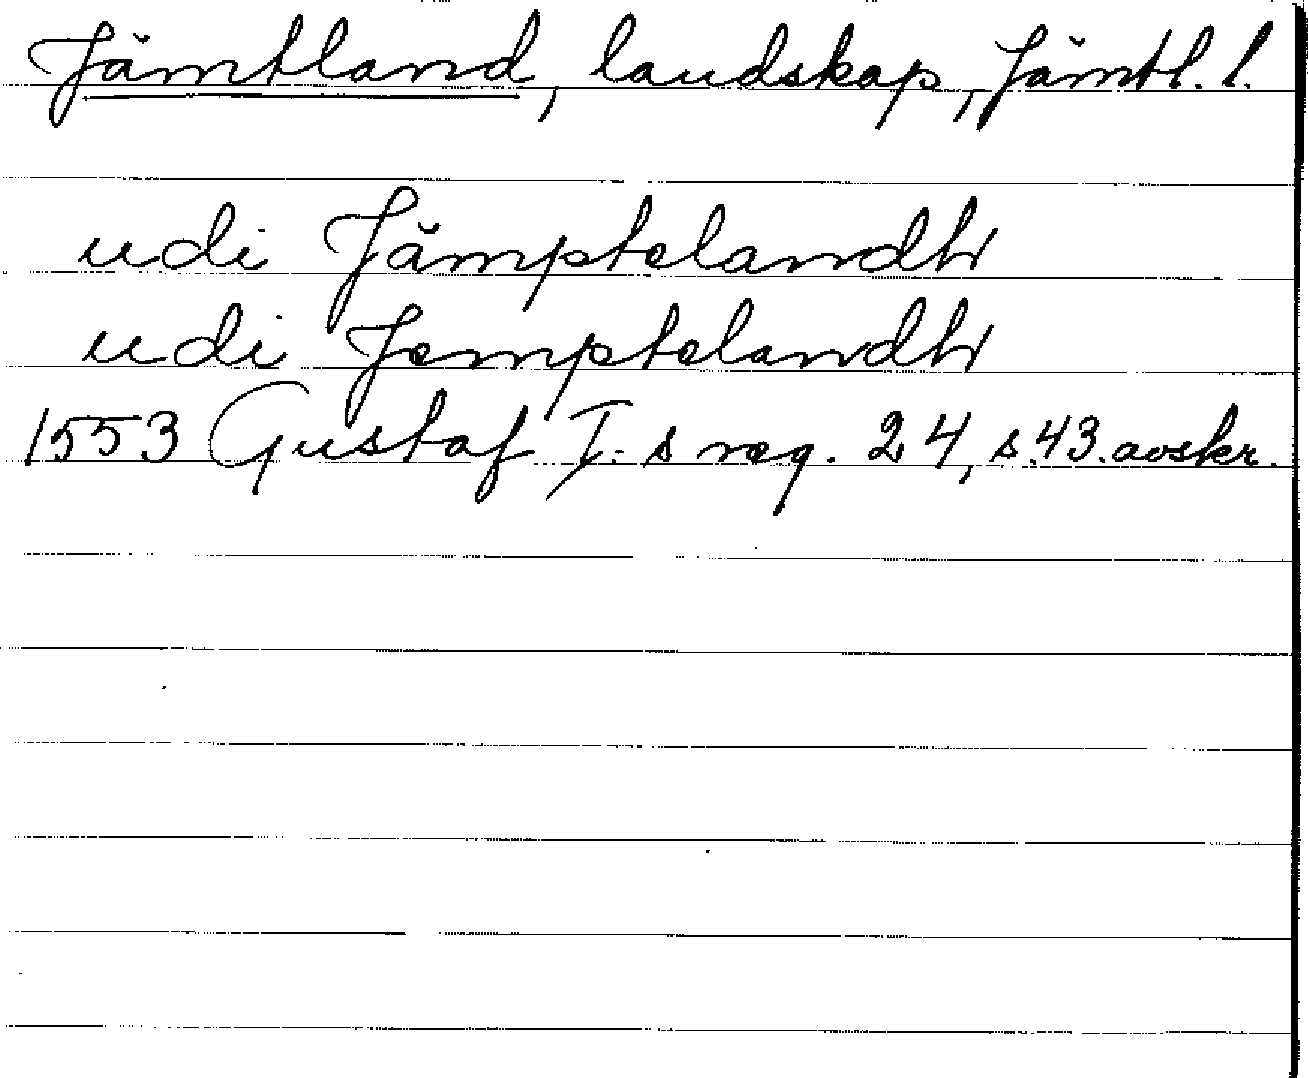 Jämtland, landskap, Jämtl. l.
udi Jämptelandh
udi Jemptelandh
1553 Gustaf I:s reg. 24, s.43.avskr.